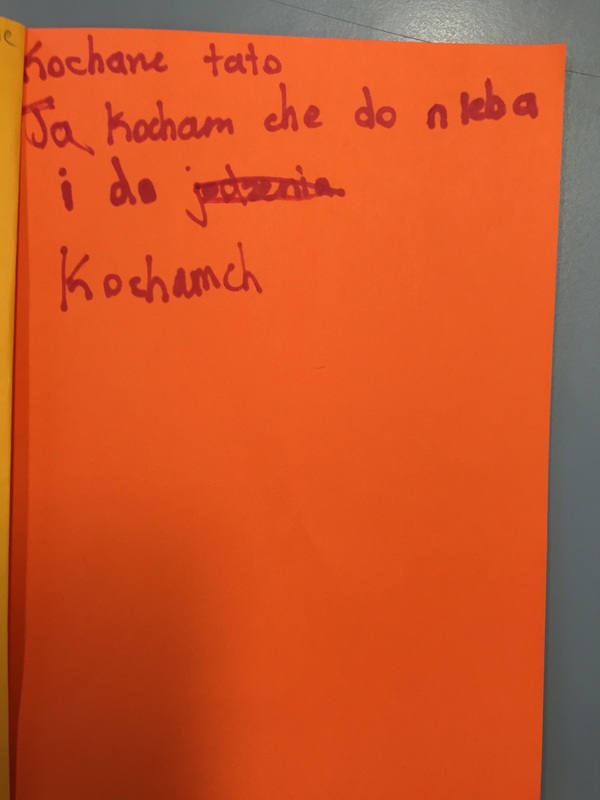 Kochane tato
Ja kocham che do nieba
i do jedzenia
Kochamch